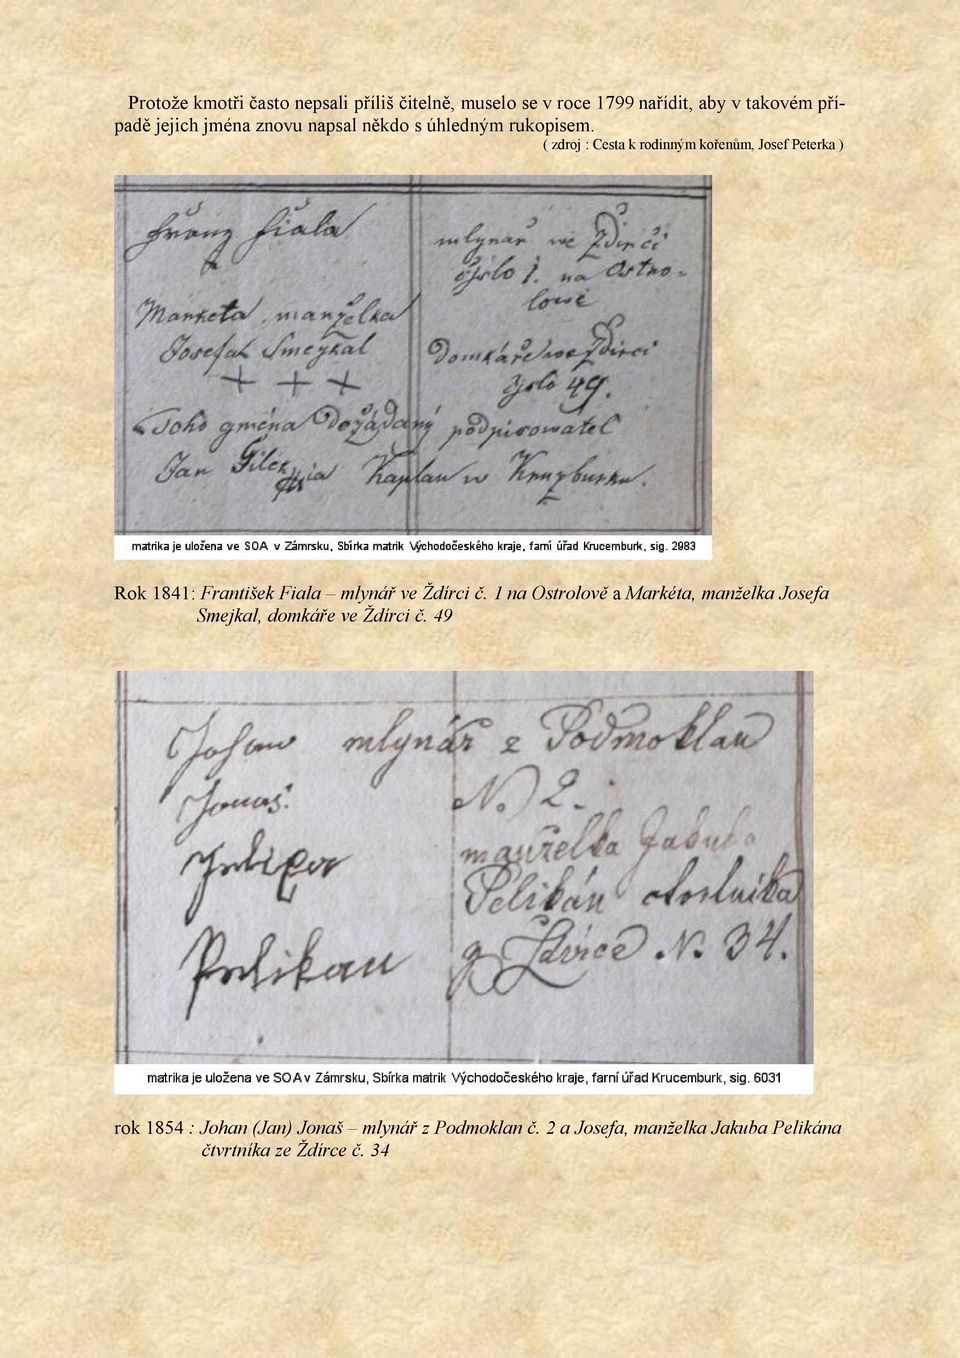 Protože kmotři často nepsali příliš čitelně, muselo se v roce 1799 nařídit, aby v takovém pří-
padě jejich jména znovu napsal někdo s úhledným rukopisem.
( zdroj : Cesta k rodinným kořenům, Josef Peterka )
Franz Fiala
mlynař we Ždirci
čjslo 1. na Ostro-
lowě
Marketa, manželka
Josefa Smeykal
+ + +
domkáře we Ždirci
čjslo 49.
Toho gména dožádaný podpisowatel
Jan Kaplan w Kruzburku.
matrika je uložena ve SOA v Zámrsku, Sbírka matrik Východočeského kraje, farní úřad Krucemburk, sig. 2983
Rok 1841: František Fiala – mlynář ve Ždírci č. 1 na Ostrolově a Markéta, manželka Josefa
Smejkal, domkáře ve Ždírci č. 49
Johan mlynář z Podmoklan
Jonaš N. 2.
manželka Jakuba
Pelikán
Pelikan z Ždirce N. 34.
matrika je uložena ve SOA v Zámrsku, Sbírka matrik Východočeského kraje, farní úřad Krucemburk, sig. 6031
rok 1854 : Johan (Jan) Jonaš – mlynář z Podmoklan č. 2 a Josefa, manželka Jakuba Pelikána
čtvrtníka ze Ždírce č. 34